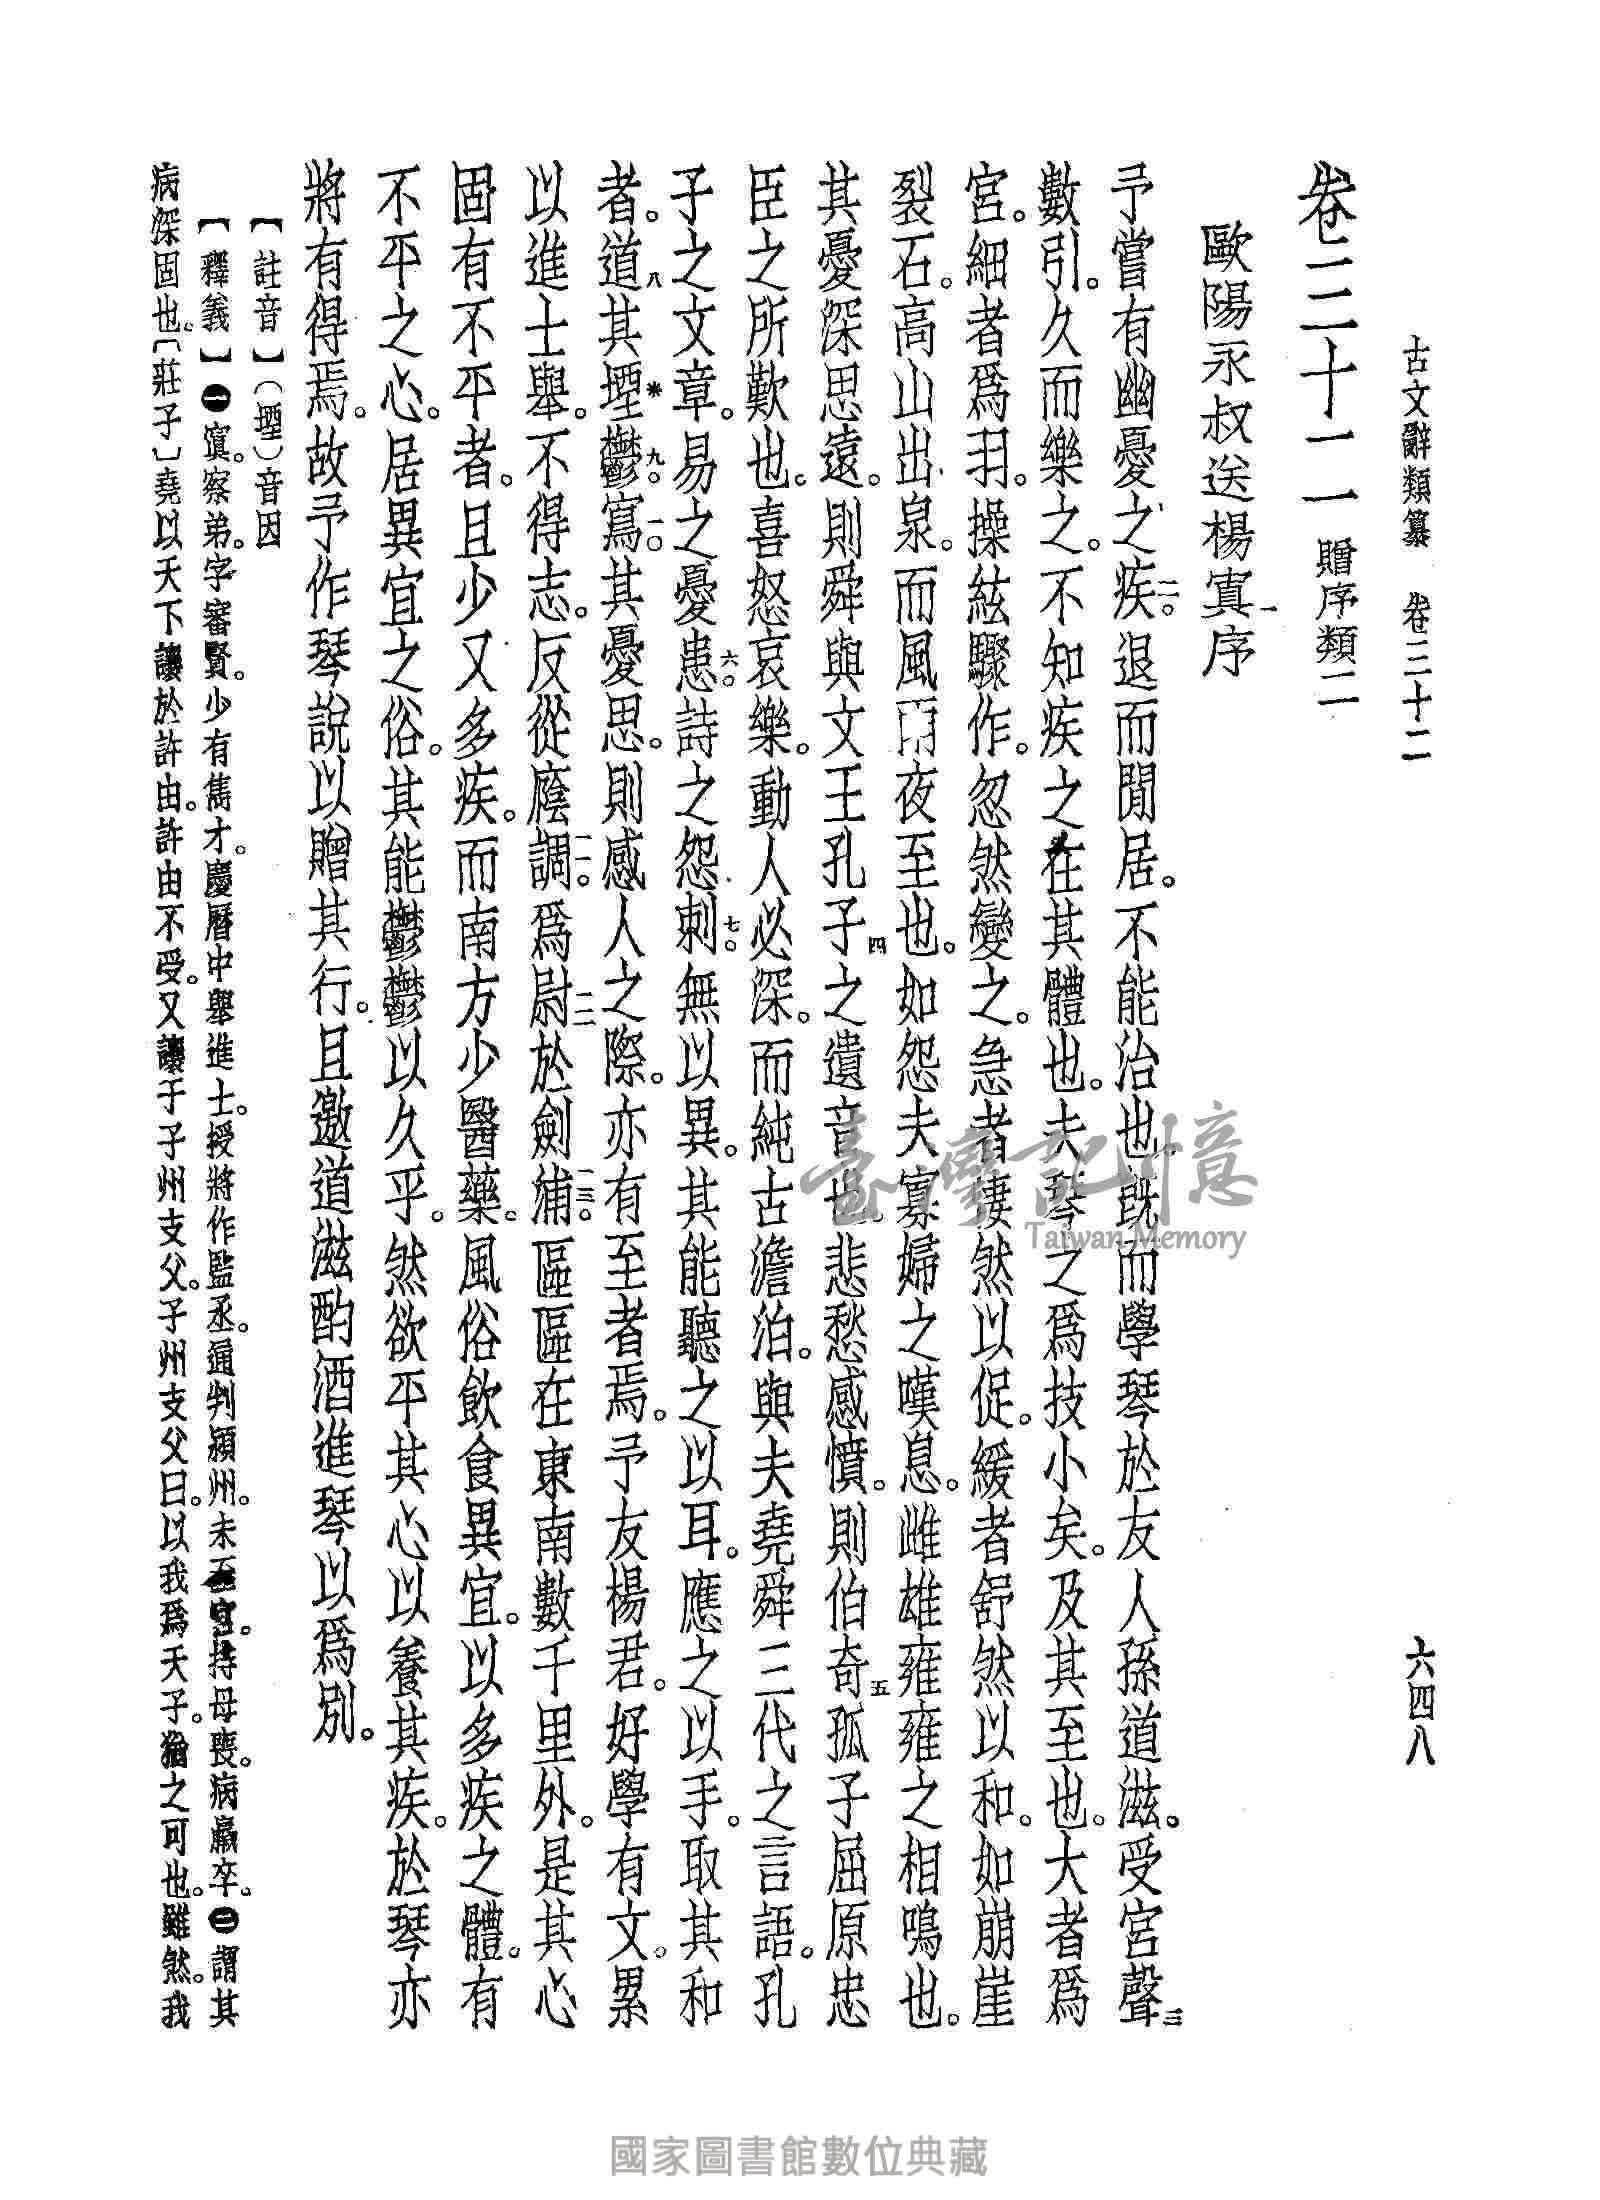 古文辭類纂　卷三十二　六四八
卷三十二　贈序類二
歐陽永叔送楊寘一序
予嘗有幽憂之疾二。退而閒居。不能治也。既而學琴於友人孫道滋。受宮聲三
數引。久而樂之。不知疾之在其體也。夫琴之爲技小矣。及其至也。大者爲
宮。細者爲羽。操絃驟作。忽然變之。急者悽然以促。緩者舒然以和。如崩崖
裂石。高山出泉。而風雨夜至也。如怨夫寡婦之嘆息。雌雄雍雍之相鳴也。
其憂深思遠。則舜與文王孔子四之遺音也。悲愁感憤。則伯奇五孤子屈原忠
臣之所歎也。喜怒哀樂。動人必深。而純古澹泊。與夫堯舜三代之言語。孔
子之文章。易之憂患六。詩之怨刺七。無以異。其能聽之以耳。應之以手。取其和
者。道八其堙*鬱九。寫一〇其憂思。則感人之際。亦有至者焉。予友楊君。好學有文。累
以進士舉。不得志。反從廕調一一。爲尉一二於劍浦一三。區區在東南數千里外。是其心
固有不平者。且少又多疾。而南方少醫藥。風俗飲食異宜。以多疾之體。有
不平之心。居異宜之俗。其能鬱鬱以久乎。然欲平其心以養其疾。於琴亦
將有得焉。故予作琴說以贈其行。且邀道滋酌酒進琴以爲別。
【註音】（堙）音因
【釋義】㊀寘。察弟。字審賢。少有雋才。慶曆中舉進士。授將作監丞。通判潁州。未至官。持母喪。病羸卒。㊁謂其
病深固也。〔莊子〕堯以天下讓於許由。許由不受。又讓于子州支父。子州支父曰。以我爲天子。猶之可也。雖然。我
臺灣記憶
Taiwan Memory
國家圖書館數位典藏